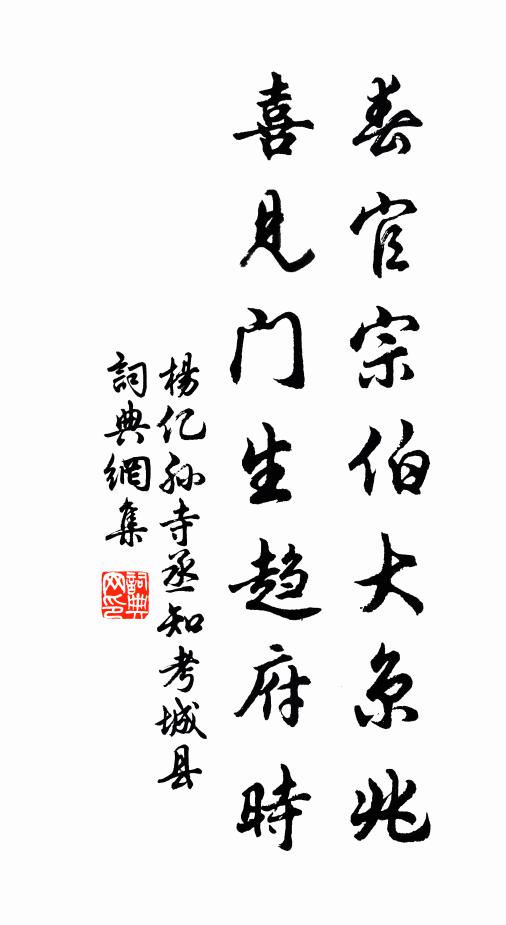 春官宗伯大京兆
喜見门生趋府時
楊亿孙寺丞知考城县
詞典網集
詞典网印